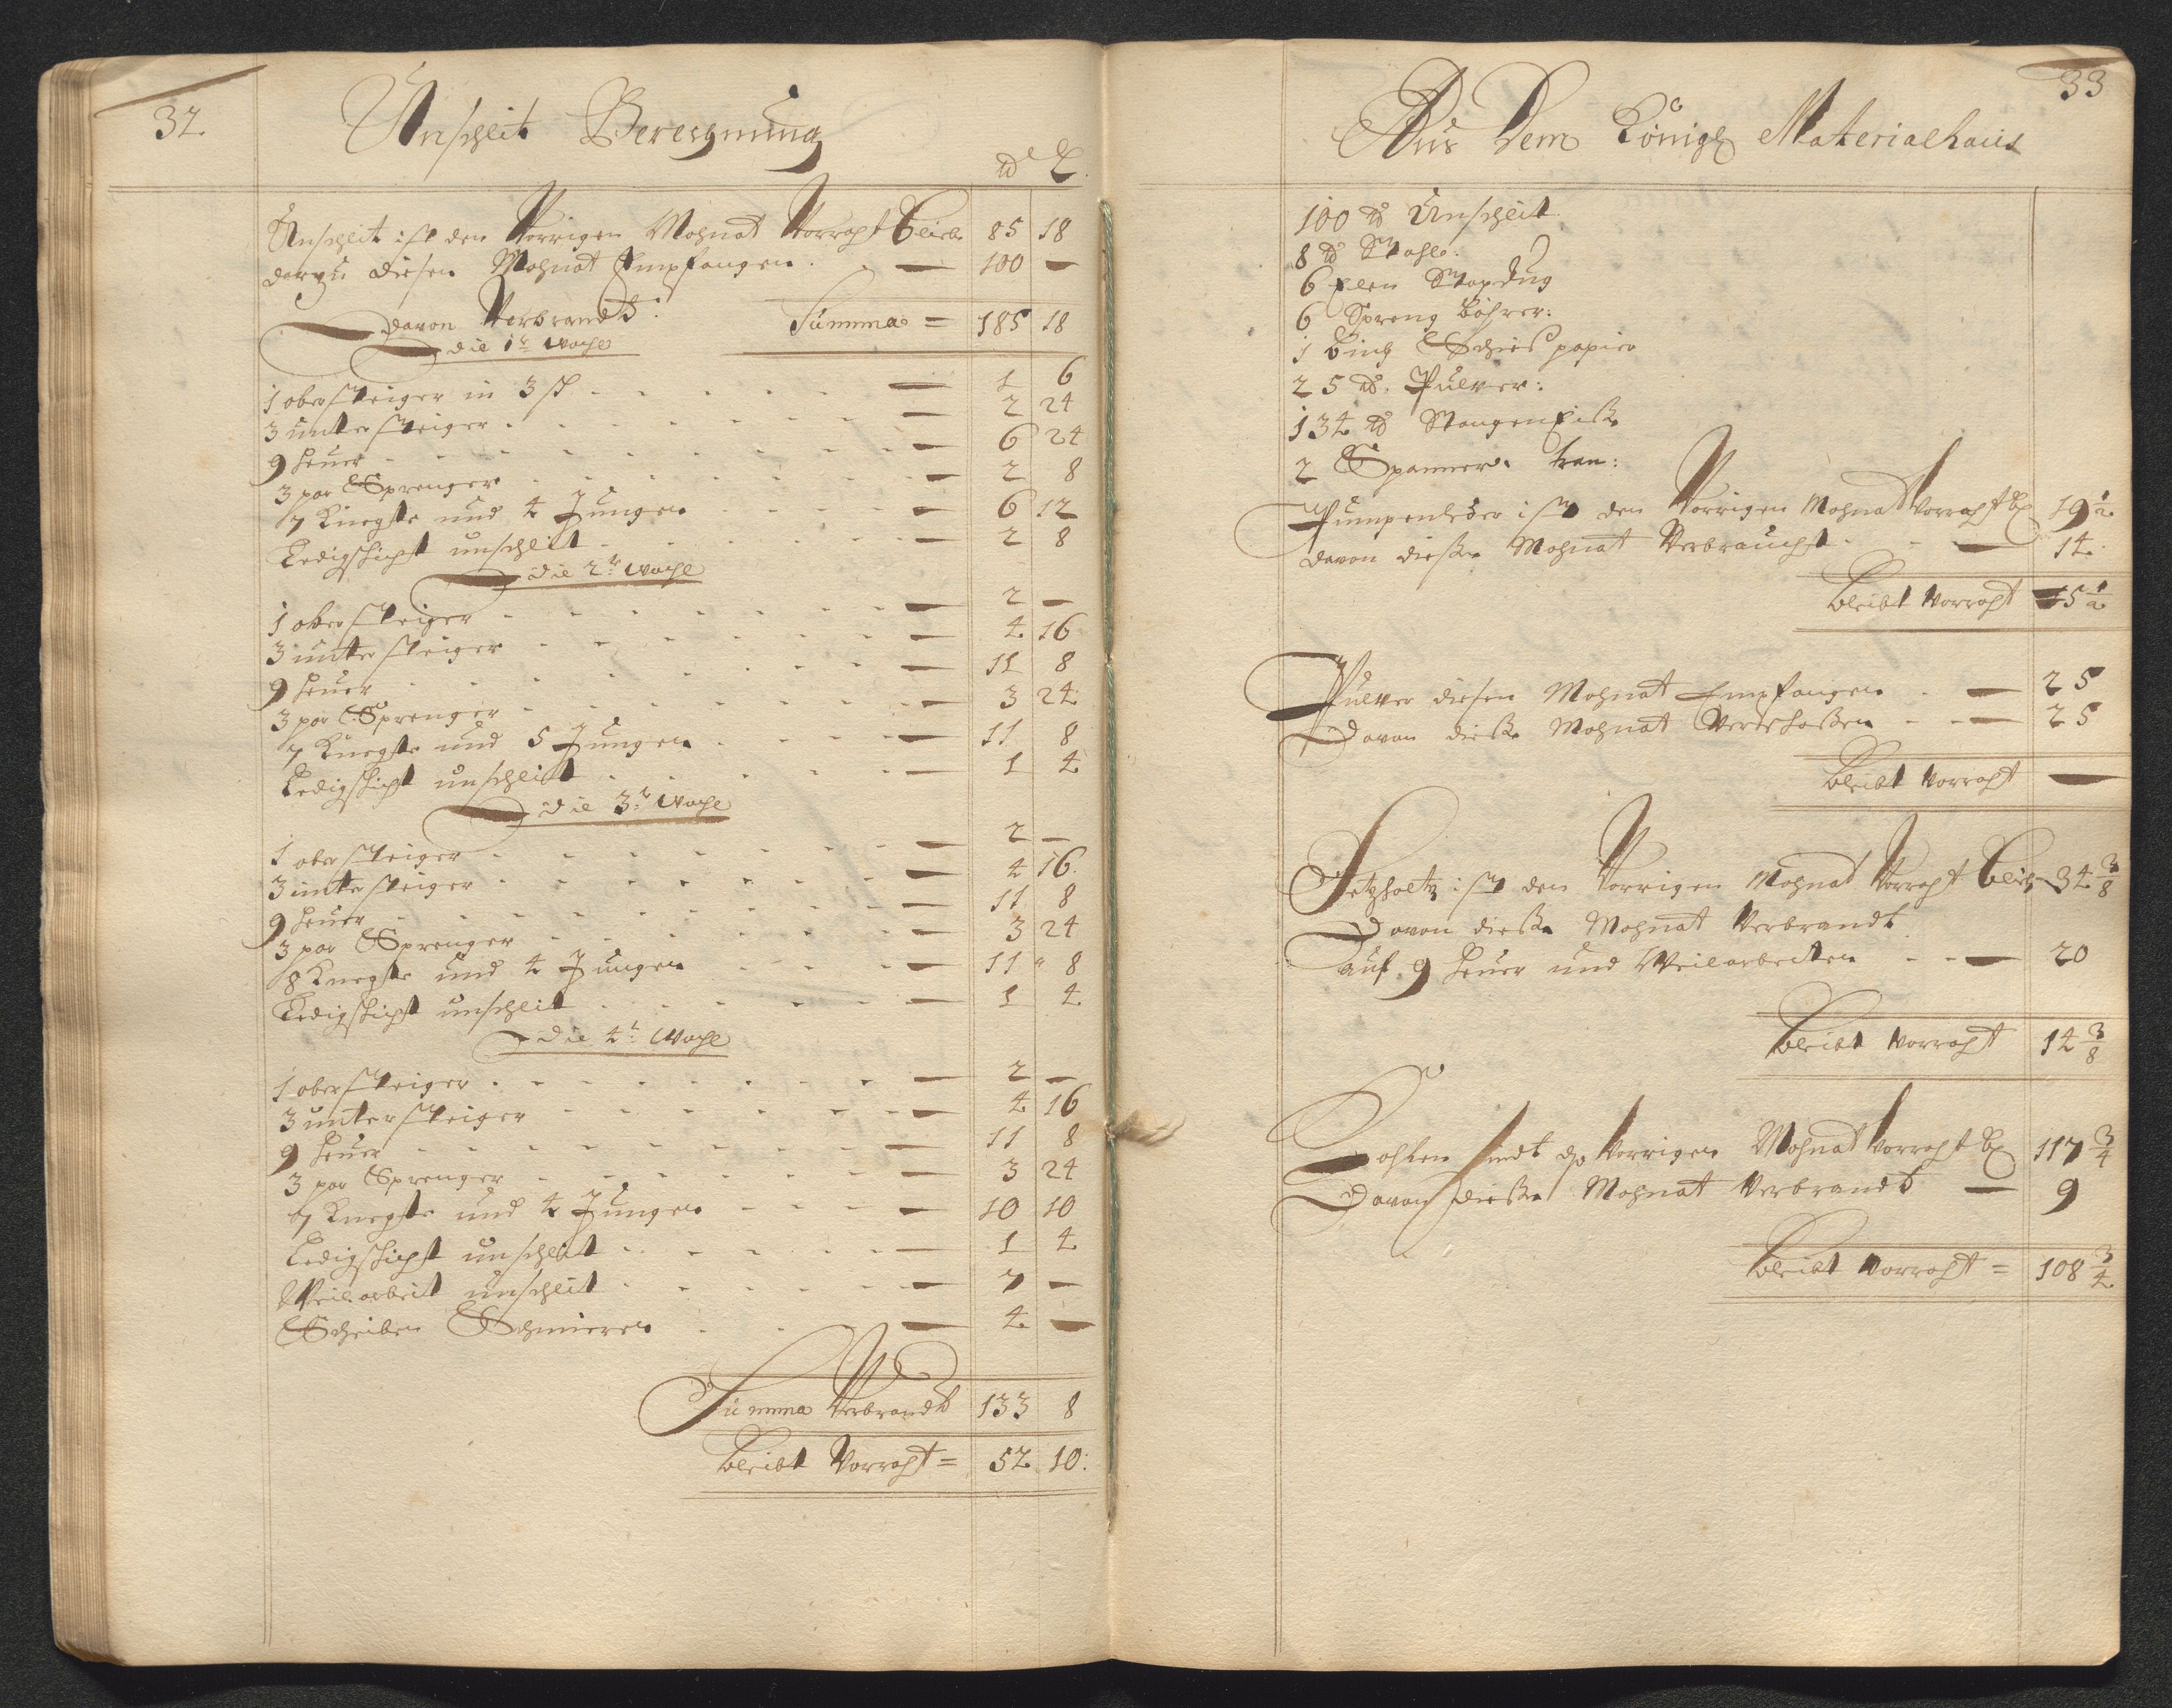 32
Unschlit Berechnung
℔ L.
Unschlit ist den Vorrigen Mohnat Vorraht blieb 85 18
darzu diesen Mohnat Empfangen . — 100 —
Summa = 185 18
davon Verbrandt:
die 1te Woche
1 obersteiger in 3 sch - - - - — 1 6
3 unter steiger . - - - - - — 2 24
9 heuer - - - - - - - — 6 24
3 par Sprenger - - - - - — 2 8
7 Knechte und 4 Jungen - - - — 6 12
Ledigschicht unschlit - - - - — 2 8
die 2te Woche
1 ober steiger - - - - - - — 2 —
3 unter steiger - - - - - — 4 16
9 heuer - - - - - - - — 11 8
3 par Sprenger - - - - - - — 3 24:
7 Knechte und 5 Jungen . - - - — 11 8
Ledigschicht unschlit . - - - - — 1 4
die 3te Woche
1 ober steiger - - - - - - — 2 —
3 unter steiger - - - - - - — 4 16.
9 heuer - - - - - - - — 11 8
3 par Sprenger - - - - - - — 3 24
8 Knechte und 4 Jungen - - - — 11 8
Ledigschicht unschlit . - - - - — 1 4
die 4te Woche
1 obersteiger . - - - - - - — 2 —
3 unter steiger - - - - - - — 4 16
9 heuer - - - - - - - — 11 8
3 par Sprenger - - - - - — 3 24
7 Knechte und 4 Jungen - - - — 10 10
Ledigschicht unschlit - - - - — 1 4
Weilarbeit unschlit - - - - - — 7 —
Scheiben Schmieren . . - — 4 —
Summa Verbrandt 133 8
bleibt Vorraht = 52 10:
33
Aus Dem Königl Materialhaus
100 ℔ Unschlit
8 ℔ Stahl:
6 Elen
6 Spreng böhrer:
1 buch Schies papier
25 ℔. Pulver:
134 ℔ Stangen Eiße
2 Spanner tran:
Pumpenleder ist den Vorrigen Mohnat Vorraht bl 19 1/2
davon dießen Mohnat Verbraucht - - — 14.
bleibt Vorraht 5 1/2
Pulver diesen Mohnat Empfangen . — 25
Davon dießen Mohnat Verschoßen - - — 25
bleibt Vorraht —
Setzholtz ist den Vorrigen Mohnat Vorraht blieb 34 3/8
Davon dießen Mohnat Verbrandt
auf 9 heuer und Weilarbeiten - - — 20
bleibt Vorraht 14 3/8
Kohlen sindt d Vorrigen Mohnat Vorraht bl 117 3/4
Davon dießen Mohnat Verbrandt — 9
bleibt Vorraht = 108 3/4